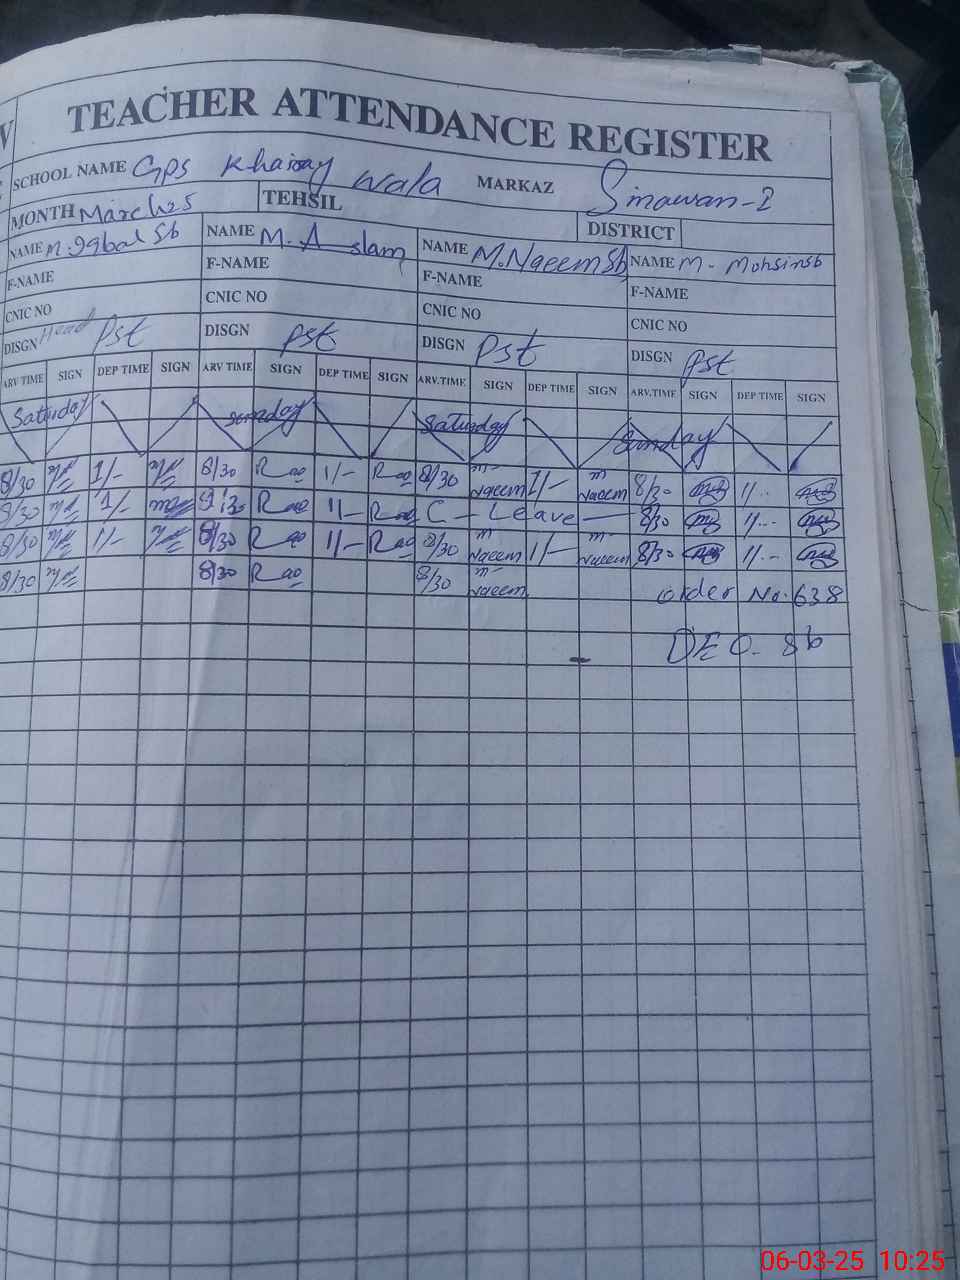 TEACHER ATTENDANCE REGISTER
SCHOOL NAME GPS Khairay wala MARKAZ Sinawan-I
MONTH March25 TEHSIL DISTRICT
NAME M. Iqbal Sb NAME M. Aslam NAME M. Naeem Sb NAME M. Mohsin sb
F-NAME F-NAME F-NAME F-NAME
CNIC NO CNIC NO CNIC NO CNIC NO
DISGN Head Pst DISGN Pst DISGN Pst DISGN Pst
ARV TIME SIGN DEP TIME SIGN ARV TIME SIGN DEP TIME SIGN ARV.TIME SIGN DEP TIME SIGN ARV.TIME SIGN DEP TIME SIGN
Saturday Sunday Saturday Sunday
8/30 1/- 8/30 Rao 1/- Rao 8/30 m Naeem 1/- m Naeem 8/30 1/--
8/30 1/- Rao 1/- Rao C - Leave - 8/30 1/--
8/30 1/- 8/30 Rao 1/- Rao 8/30 m Naeem 1/- m Naeem 8/30 1/--
8/30 8/30 Rao 8/30 m Naeem order No. 638
DEO-
06-03-25 10:25